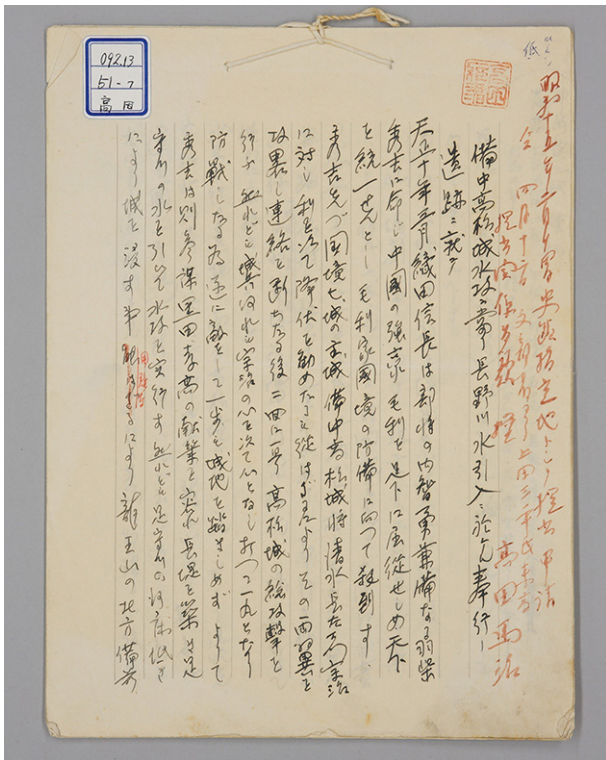 092.13
51-7
高田
紙
昭和十五年二月九日史蹟指定地トシテ提出申請
仝 四月十一日 文部省ヨリ上田三平氏来
提出関係 高田馬治
備中高松城水攻ニ当リ長野川水引入ニ於ケル奉行ノ
遺跡ニ就テ
天正十年三月織田信長は部将の内智勇兼備なる羽柴
秀吉に命じ中國の強豪毛利を足下に屈従せしめ天下
を統一せんとし毛利家國境の防備に向つて殺到す
秀吉先づ国境七城の主城備中高松城将清水長左ヱ門宗治
に対し利を以て降伏を勧めたるも従はざるによりその両翼を
攻畧し連絡を断ちたる後二回に亘り高松城の総攻撃を
行ふ 然れども城兵何れも宗治の心を以て心となし打つて一丸となり
防戦したる為遂に敵をして一歩も城地を踏ましめず よつて
秀吉は則参謀黒田孝高の献策を容れ長堤を築き足
守川の水を引いて水攻を実行す 然れども足守川の河床低き
により城を浸す事 により龍王山の北方備前